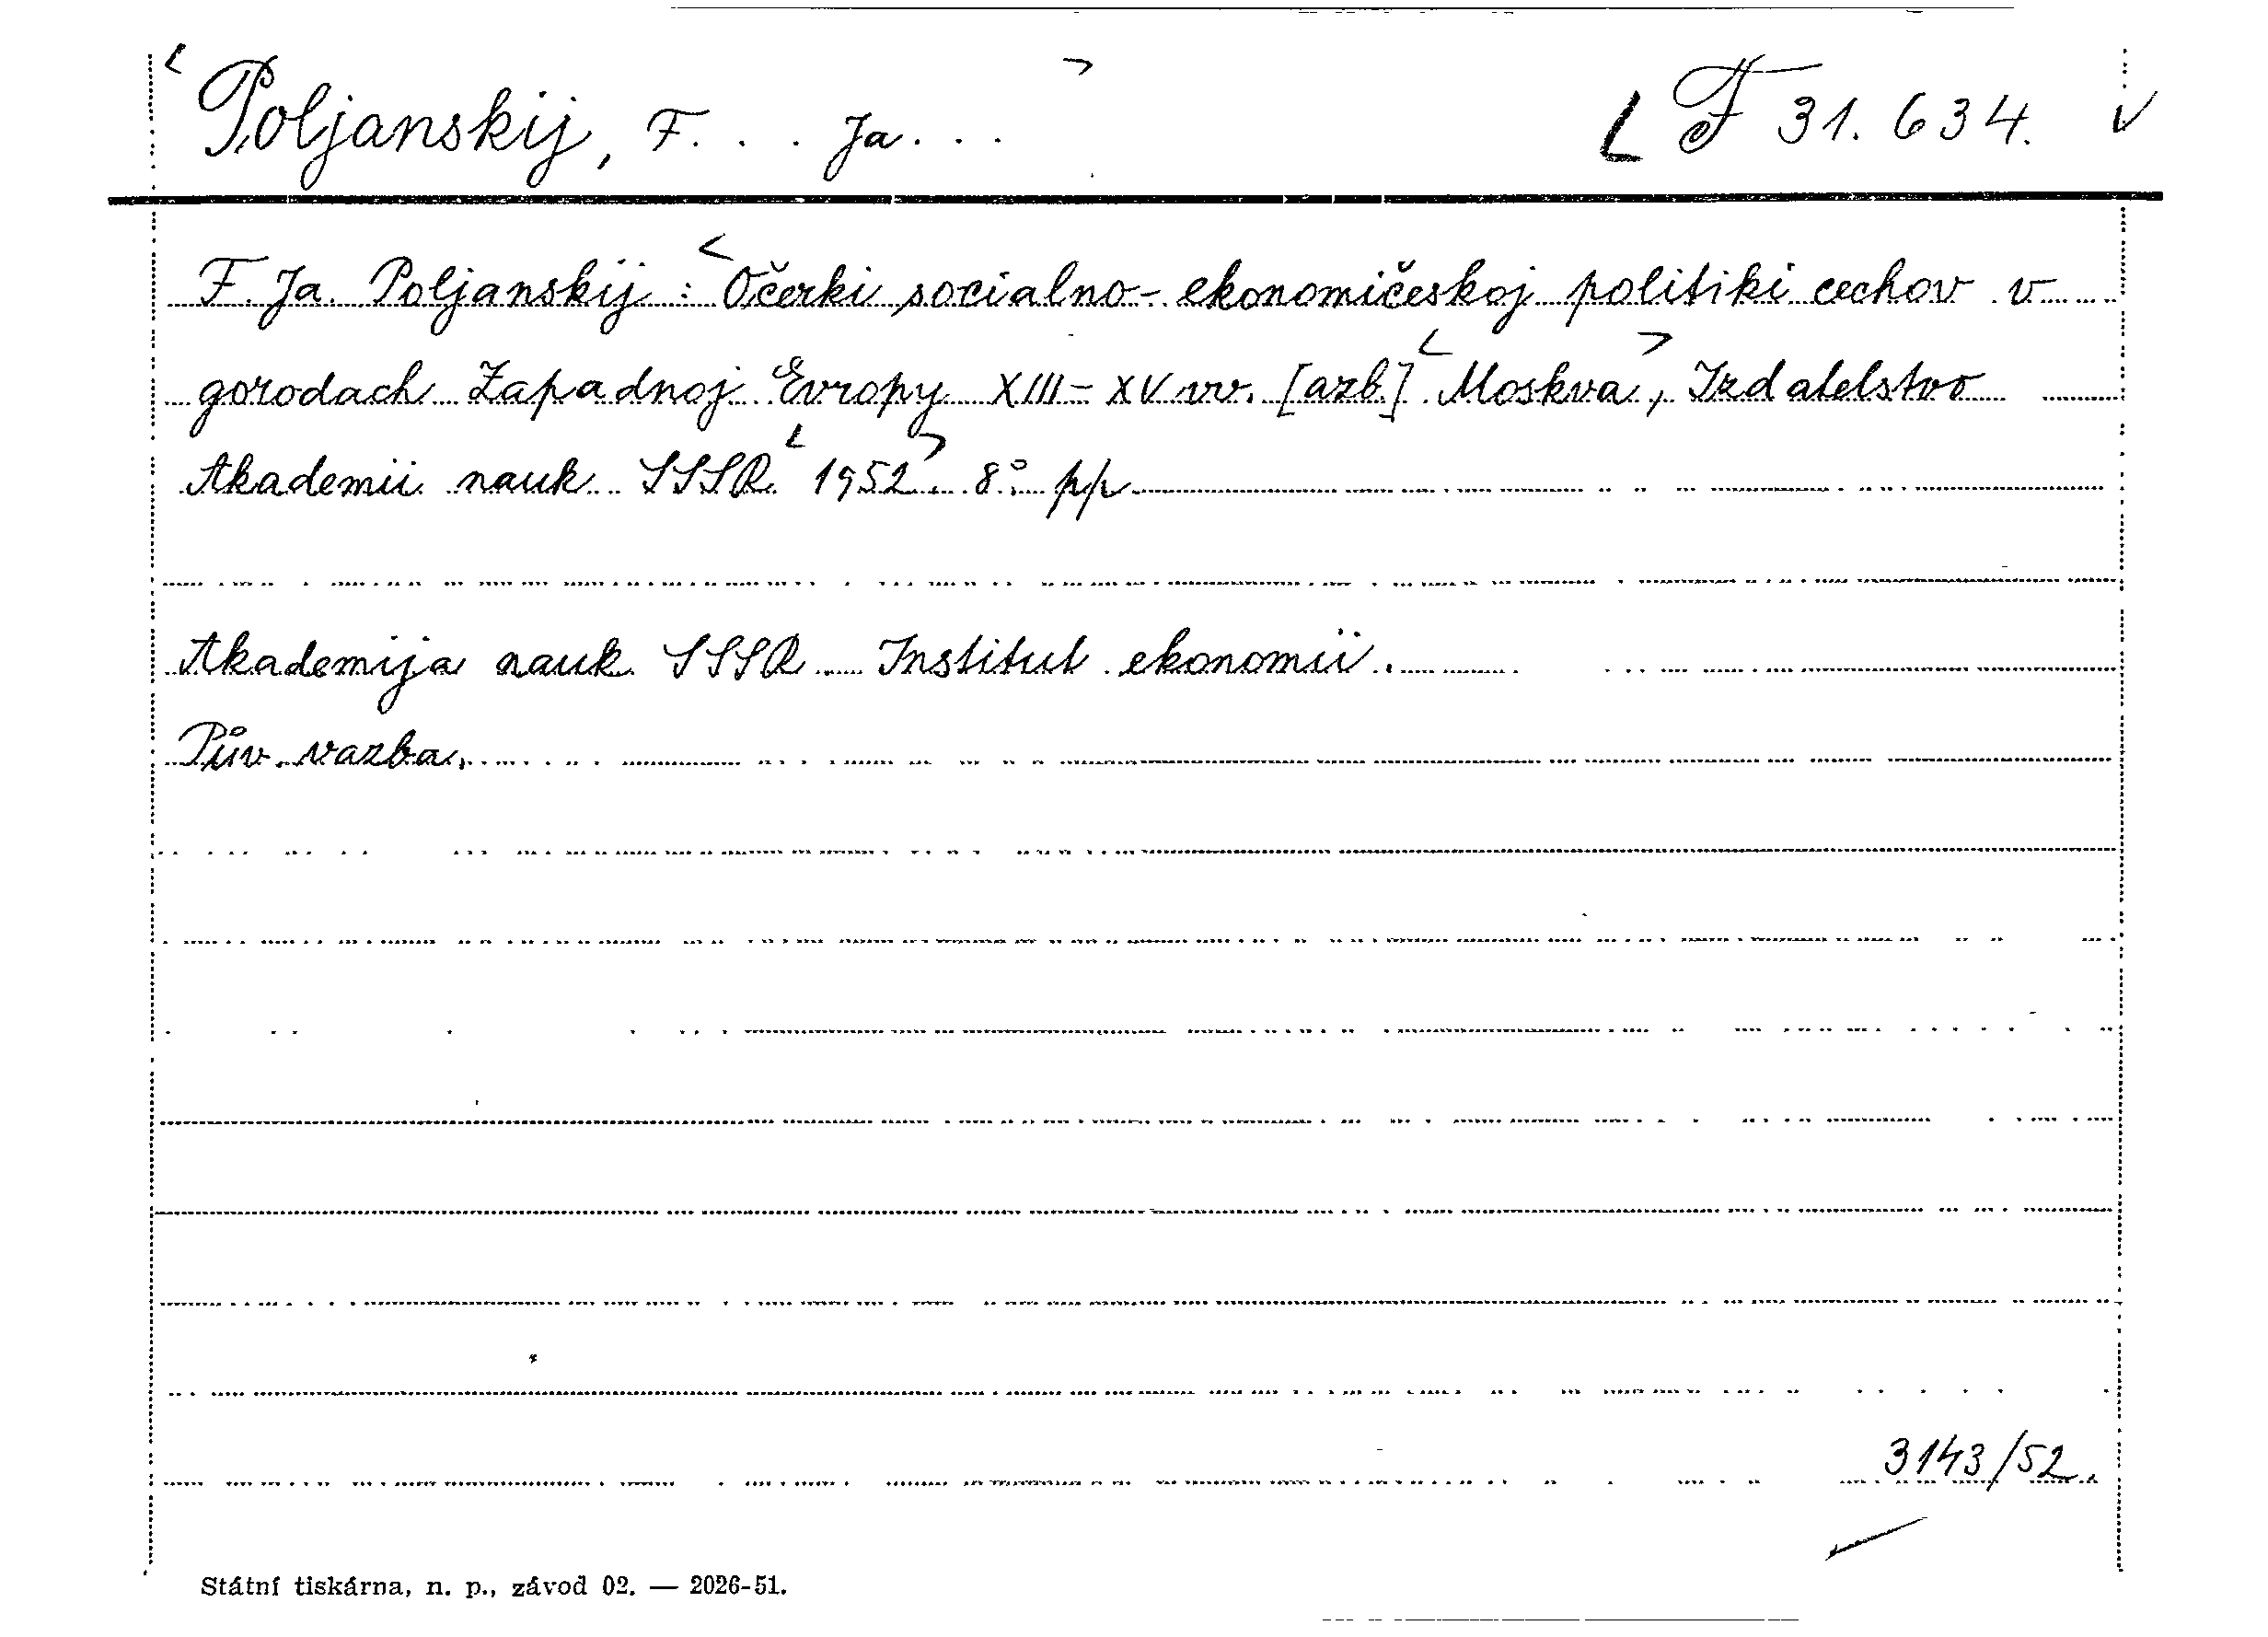 Poljanskij, F... Ja... F 31.634.
F. Ja. Poljanskij: Očerki socialno-ekonomičeskoj politiki cechov v
gorodach Zapadnoj Evropy XIII-XV vv. [azb.] Moskva, Izdatelstvo
Akademii nauk SSSR 1952. 8° pp
Akademija nauk SSSR Institut ekonomii.
Pův. vazba.
3143/52.
Státní tiskárna, n. p., závod 02. — 2026-51.